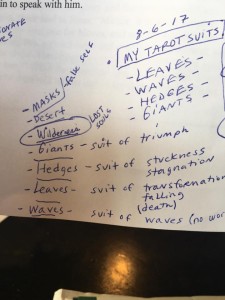 in to speak with him.
8-6-17
MY TAROT SUITS
- LEAVES -
- WAVES -
- HEDGES -
- GIANTS -
- MASKS / false self
- Desert
- Wilderness LOST SOULS
- Giants - suit of triumph
- Hedges - suit of stuckness
stagnation
- Leaves - suit of transformation
falling
(death)
- Waves - suit of waves (no